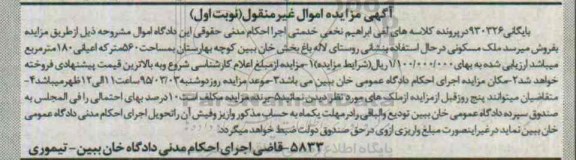 آگهی مزایده اموال غیر منقول (نوبت اول)
بایگانی ۹۳۰۳۲۶ در پرونده کلاسه های آقی ابراهیم نخعی خدمتی اجرا احکام مدنی حقوقی این دادگاه اموال مشروحه ذیل از طریق مزایده
بفروش میرسد ملک مسکونی در حال استفاده بنشانی روستای لاله باغ بخش خان ببین کوچه بهارستان بمساحت ۵۶۰ متر که اعیانی ۱۸۰ مترمربع
میباشد ارزیابی شده به بهای ۱/۱۰۰/۰۰۰/۰۰۰ ریال (شرایط مزایده) ۱-مزایده از مبلغ اعلام کارشناسی شروع و به بالاترین قیمت پیشنهادی فروخته
خواهد شد ۲-مکان مزایده اجرای احکام دادگاه عمومی خان ببین می باشد ۳-موعد مزایده روز دوشنبه ۹۵/۰۲/۰۳ ساعت ۱۱ الی ۱۲ ظهر میباشد ۴-
متقاضیان میتوانند پنج روز قبل از مزایده از ملک های مورد نظر دیدن نمایند ۵-برنده مزایده مکلف است ۱۰ درصد بهای احتمالی را فی المجلس به
صندوق سپرده دادگاه عمومی خان ببین تودیع و الباقی را در مهلت یکماه به حساب مذکور واریز و فیش آن را تحویل اجرای احکام مدنی دادگاه عمومی
خان ببین نماید در غیر اینصورت مبلغ واریزی از وی در حق صندوق دولت ضبط خواهد میگردد
۵۸۲۳-قاضی اجرای احکام مدنی دادگاه خان ببین- تیموری